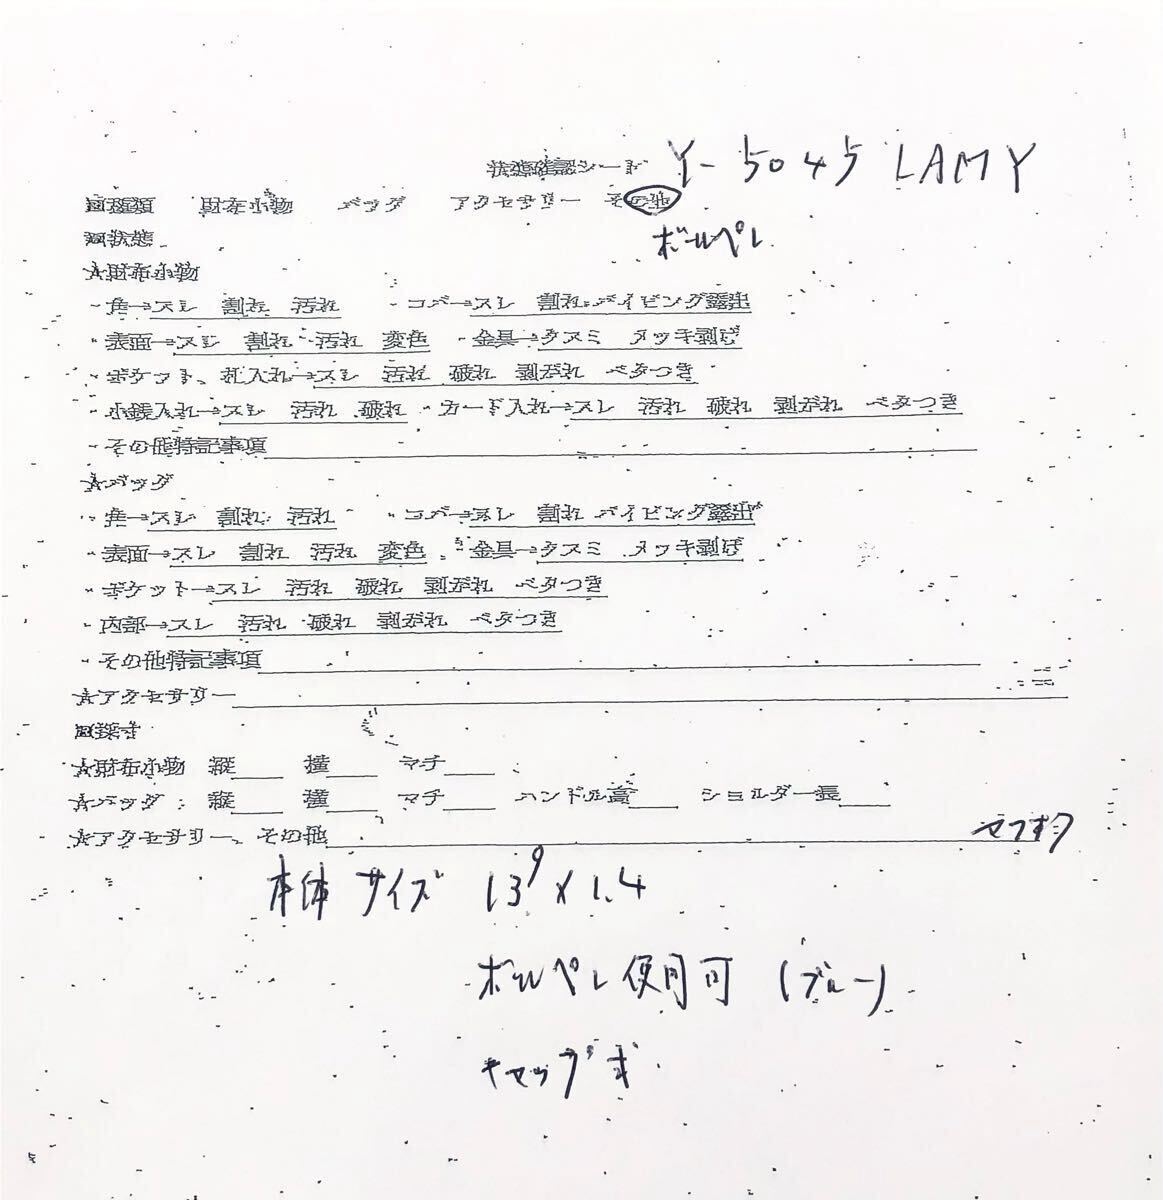 状態確認シート Y-5045 LAMY
回種類 財布小物 バッグ アクセサリー その他
ボールペン
回状態
★財布小物
・角→スレ 割れ 汚れ ・コバ→スレ 割れ パイピング露出
・表面→スレ 割れ 汚れ 変色 ・金具→クスミ メッキ剥げ
・ポケット、札入れ→スレ 汚れ 破れ 剥がれ ベタつき
・小銭入れ→スレ 汚れ 破れ ・カード入れ→スレ 汚れ 破れ 剥がれ ベタつき
・その他特記事項
★バッグ
・角→スレ 割れ 汚れ ・コバ→スレ 割れ パイピング露出
・表面→スレ 割れ 汚れ 変色 ・金具→クスミ メッキ剥げ
・ポケット→スレ 汚れ 破れ 剥がれ ベタつき
・内部→スレ 汚れ 破れ 剥がれ ベタつき
・その他特記事項
★アクセサリー
回採寸
★財布小物 縦 横 マチ
★バッグ 縦 横 マチ ハンドル高 ショルダー長
★アクセサリー、その他
本体サイズ 13⁹×1.4
ボールペン使用可 (ブルー)